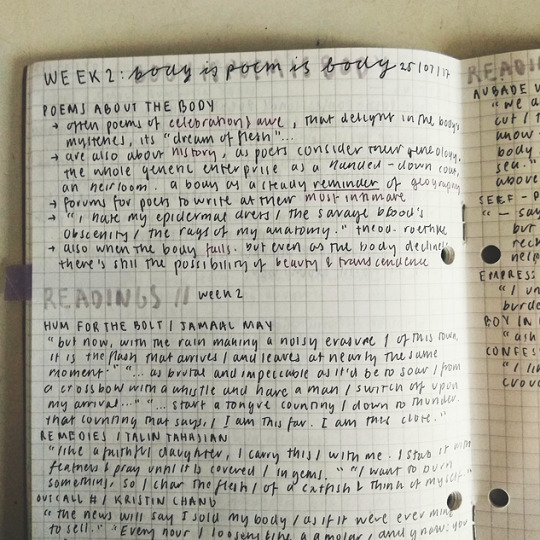 WEEK 2: body is poem is body 25/07/17
POEMS ABOUT THE BODY
→ often poems of celebration & awe, that delight in the body's
mysteries, its "dream of flesh"...
→ are also about history, as poets consider their genealogy,
the whole genetic enterprise as a handed-down coat,
an heirloom. a body as a steady reminder of geography
→ forums for poets to write at their most intimate
→ "i, hate my epidermal dress / the savage blood's
obscenity / the rags of my anatomy." theod. roethke
→ also when the body fails. but even as the body declines
there's still the possibility of beauty & transcendence
READINGS // week 2
HUM FOR THE BOLT / JAMAAL MAY
"but now, with the rain making a noisy erasure / of this town,
it is the flash that arrives / and leaves at nearly the same
moment." "... as brutal and impeccable as it'd be to soar / from
a crossbow with a whistle and have a man / switch off upon
my arrival..." "... start a tongue counting / down to thunder.
that counting that says, / I am this far. I am this close."
REMEDIES / TALIN TAHAJIAN
"like a faithful daughter, I carry this / with me. I stab it with
feathers & pray until it is covered / in gems." "I want to burn
something, so I char the flesh / of a catfish & think of myself"
OUTCALL # / KRISTIN CHANG
"the news will say I sold my body / as if it were ever mine
to sell." "Every hour / I loosen like a molar, and y now: you
READINGS
AUBADE
"we a
cut / t
know
body
sea."
above
SELF-P
"— say
but
rech
help
EMPRESS
"I un
burde
BOY IN
"ash
CONFES
"I li
crova